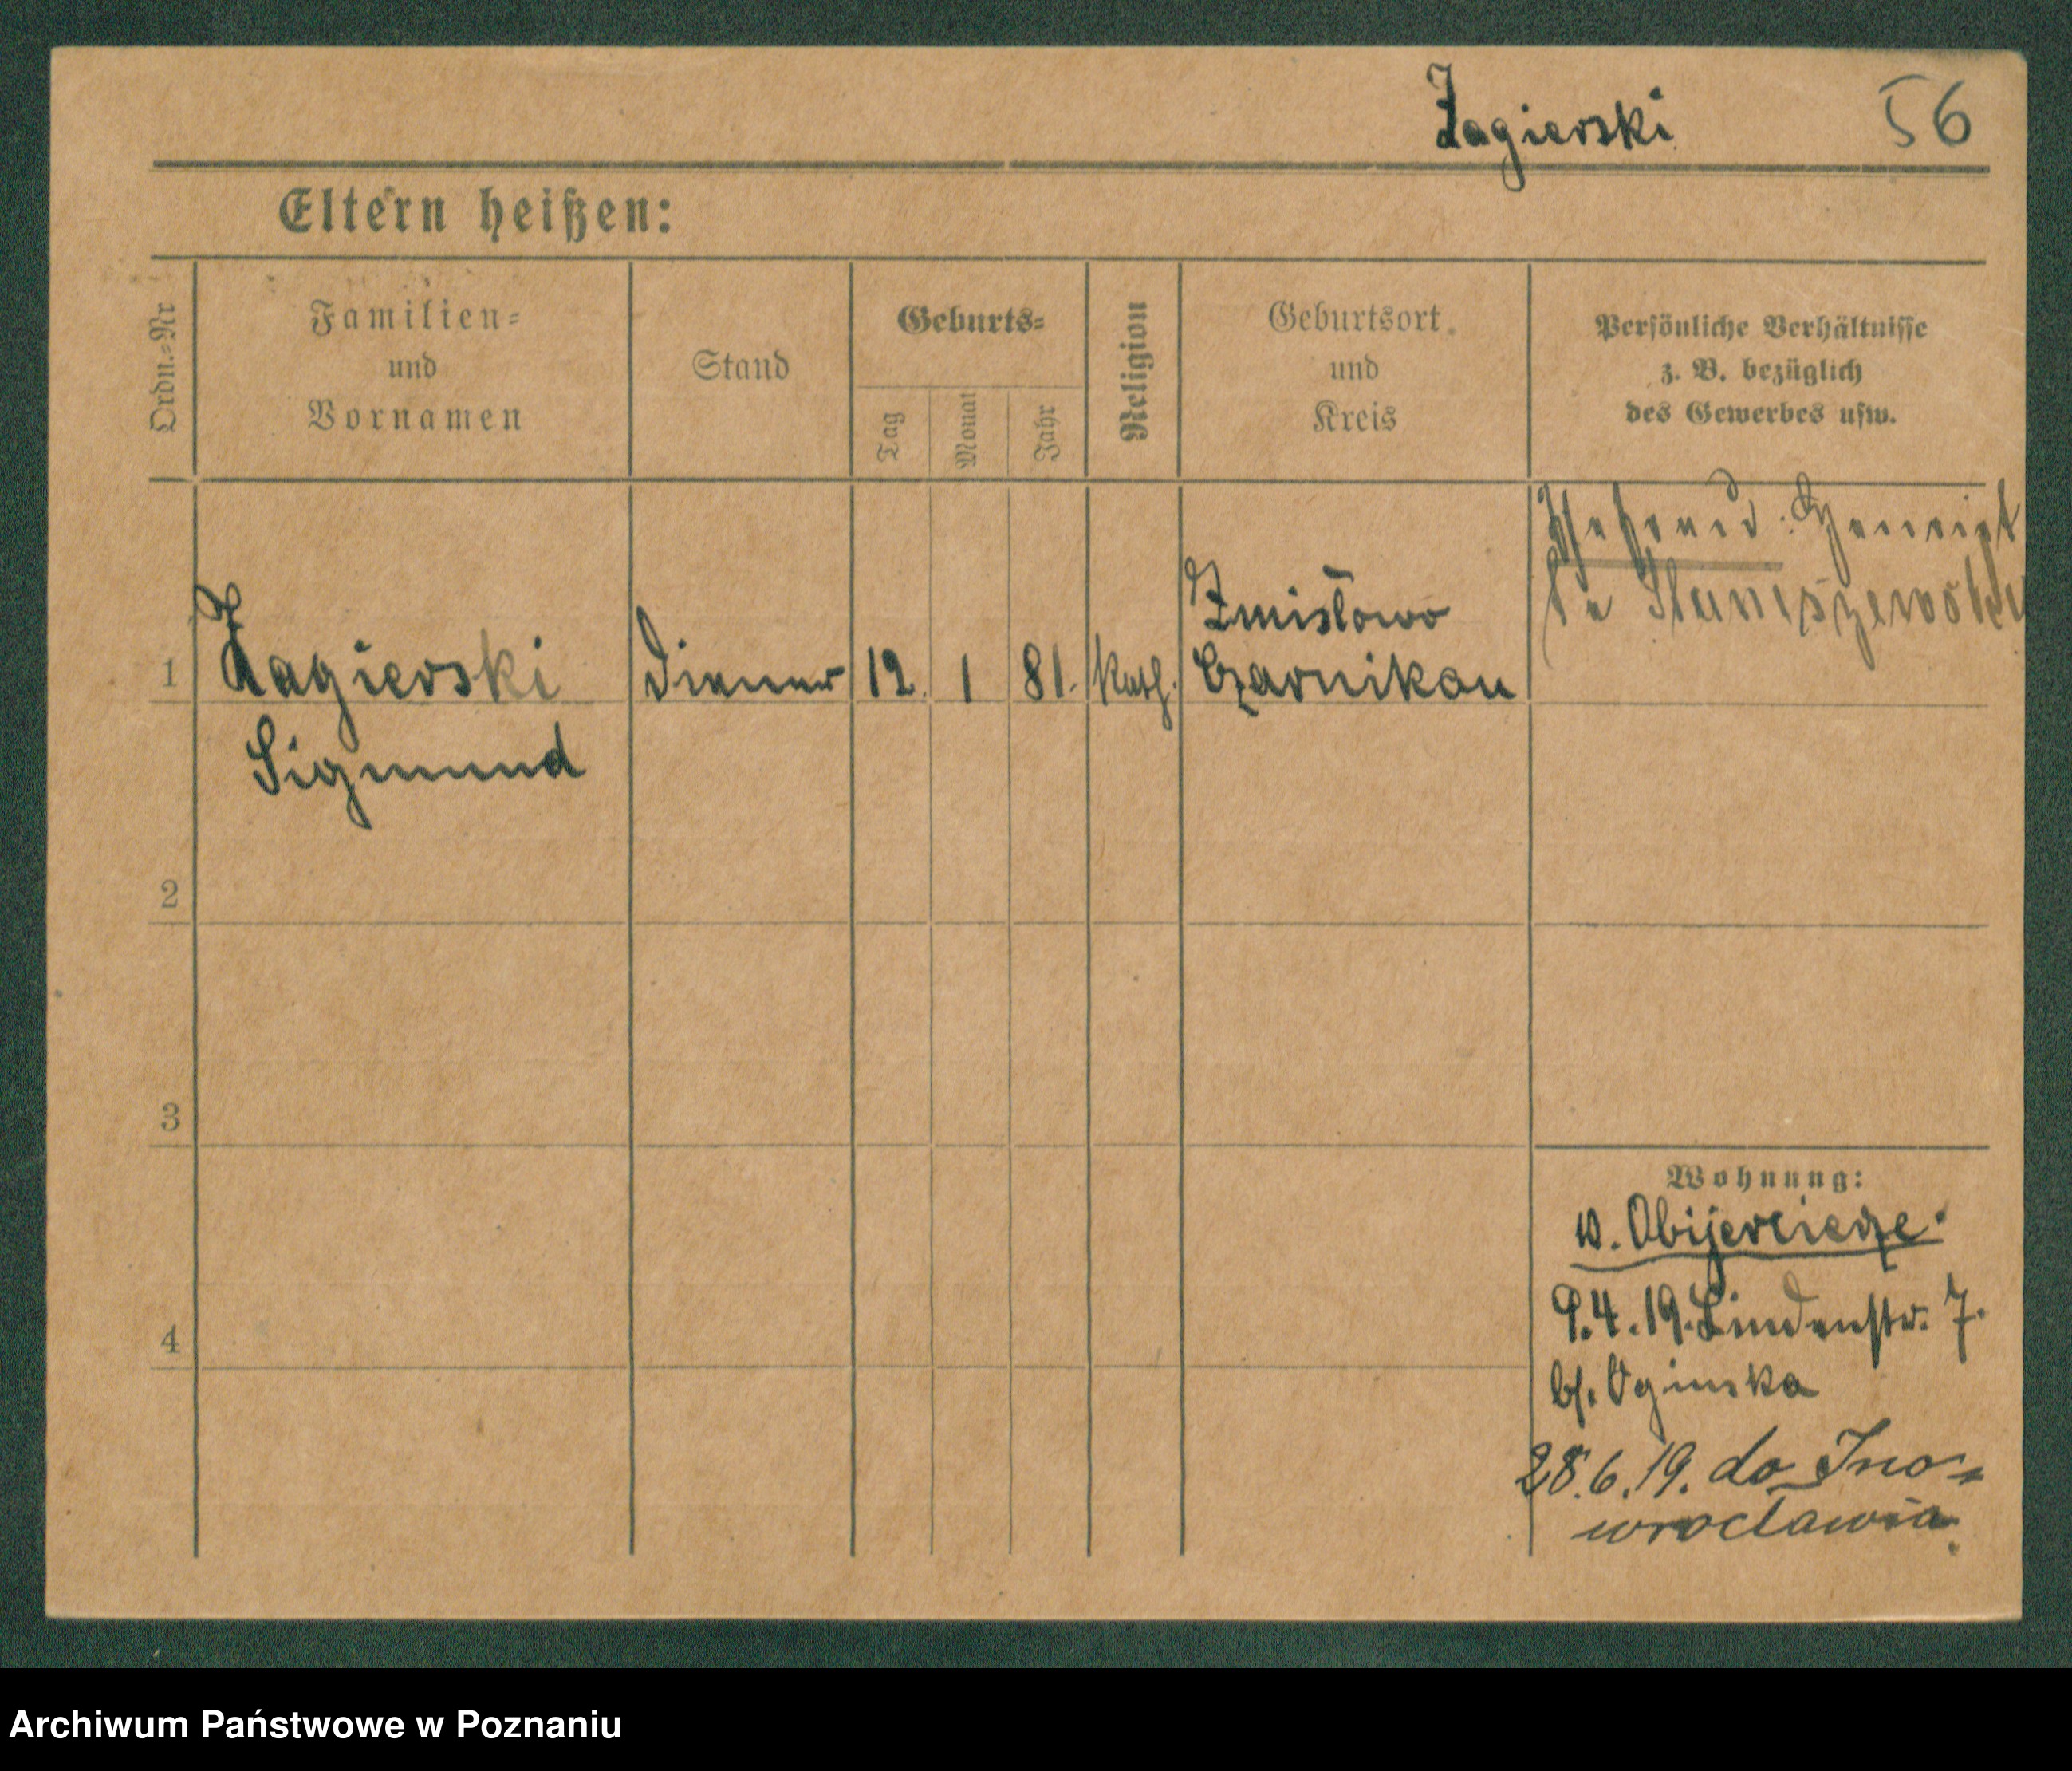 Zagierski 56
Eltern heißen:
Ordn.-Nr
Familien-
und
Vornamen
Stand
Geburts-
Tag
Monat
Jahr
Religion
Geburtsort
und
Kreis
Persönliche Verhältnisse
z. B. bezüglich
des Gewerbes usw.
Staniszewska
1 Zagierski Diener 12. 1 81. Kath. Zmisłowo
Czarnikau
Sigmund
2
3
4
Wohnung:
w. Obijercieze.
9.4.19. Lindenstr. 7.
bf. Oginska
28.6.19. do Ino-
wrocławia.
Archiwum Państwowe w Poznaniu